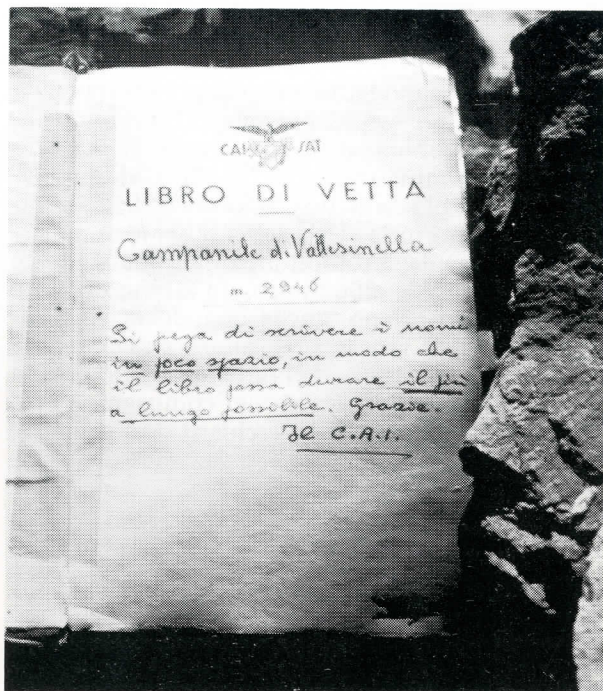 CAI SAT
LIBRO DI VETTA
Campanile di Vallesinella
m 2946
Si prega di scrivere i nomi
in poco spazio, in modo che
il libro possa durare il più
a lungo possibile. Grazie.
Il C.A.I.